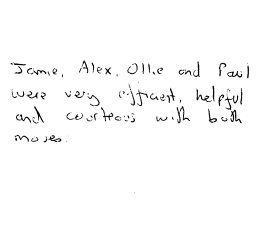 Jamie, Alex, Ollie and Paul
were very efficient, helpful
and courteous with both
moves.